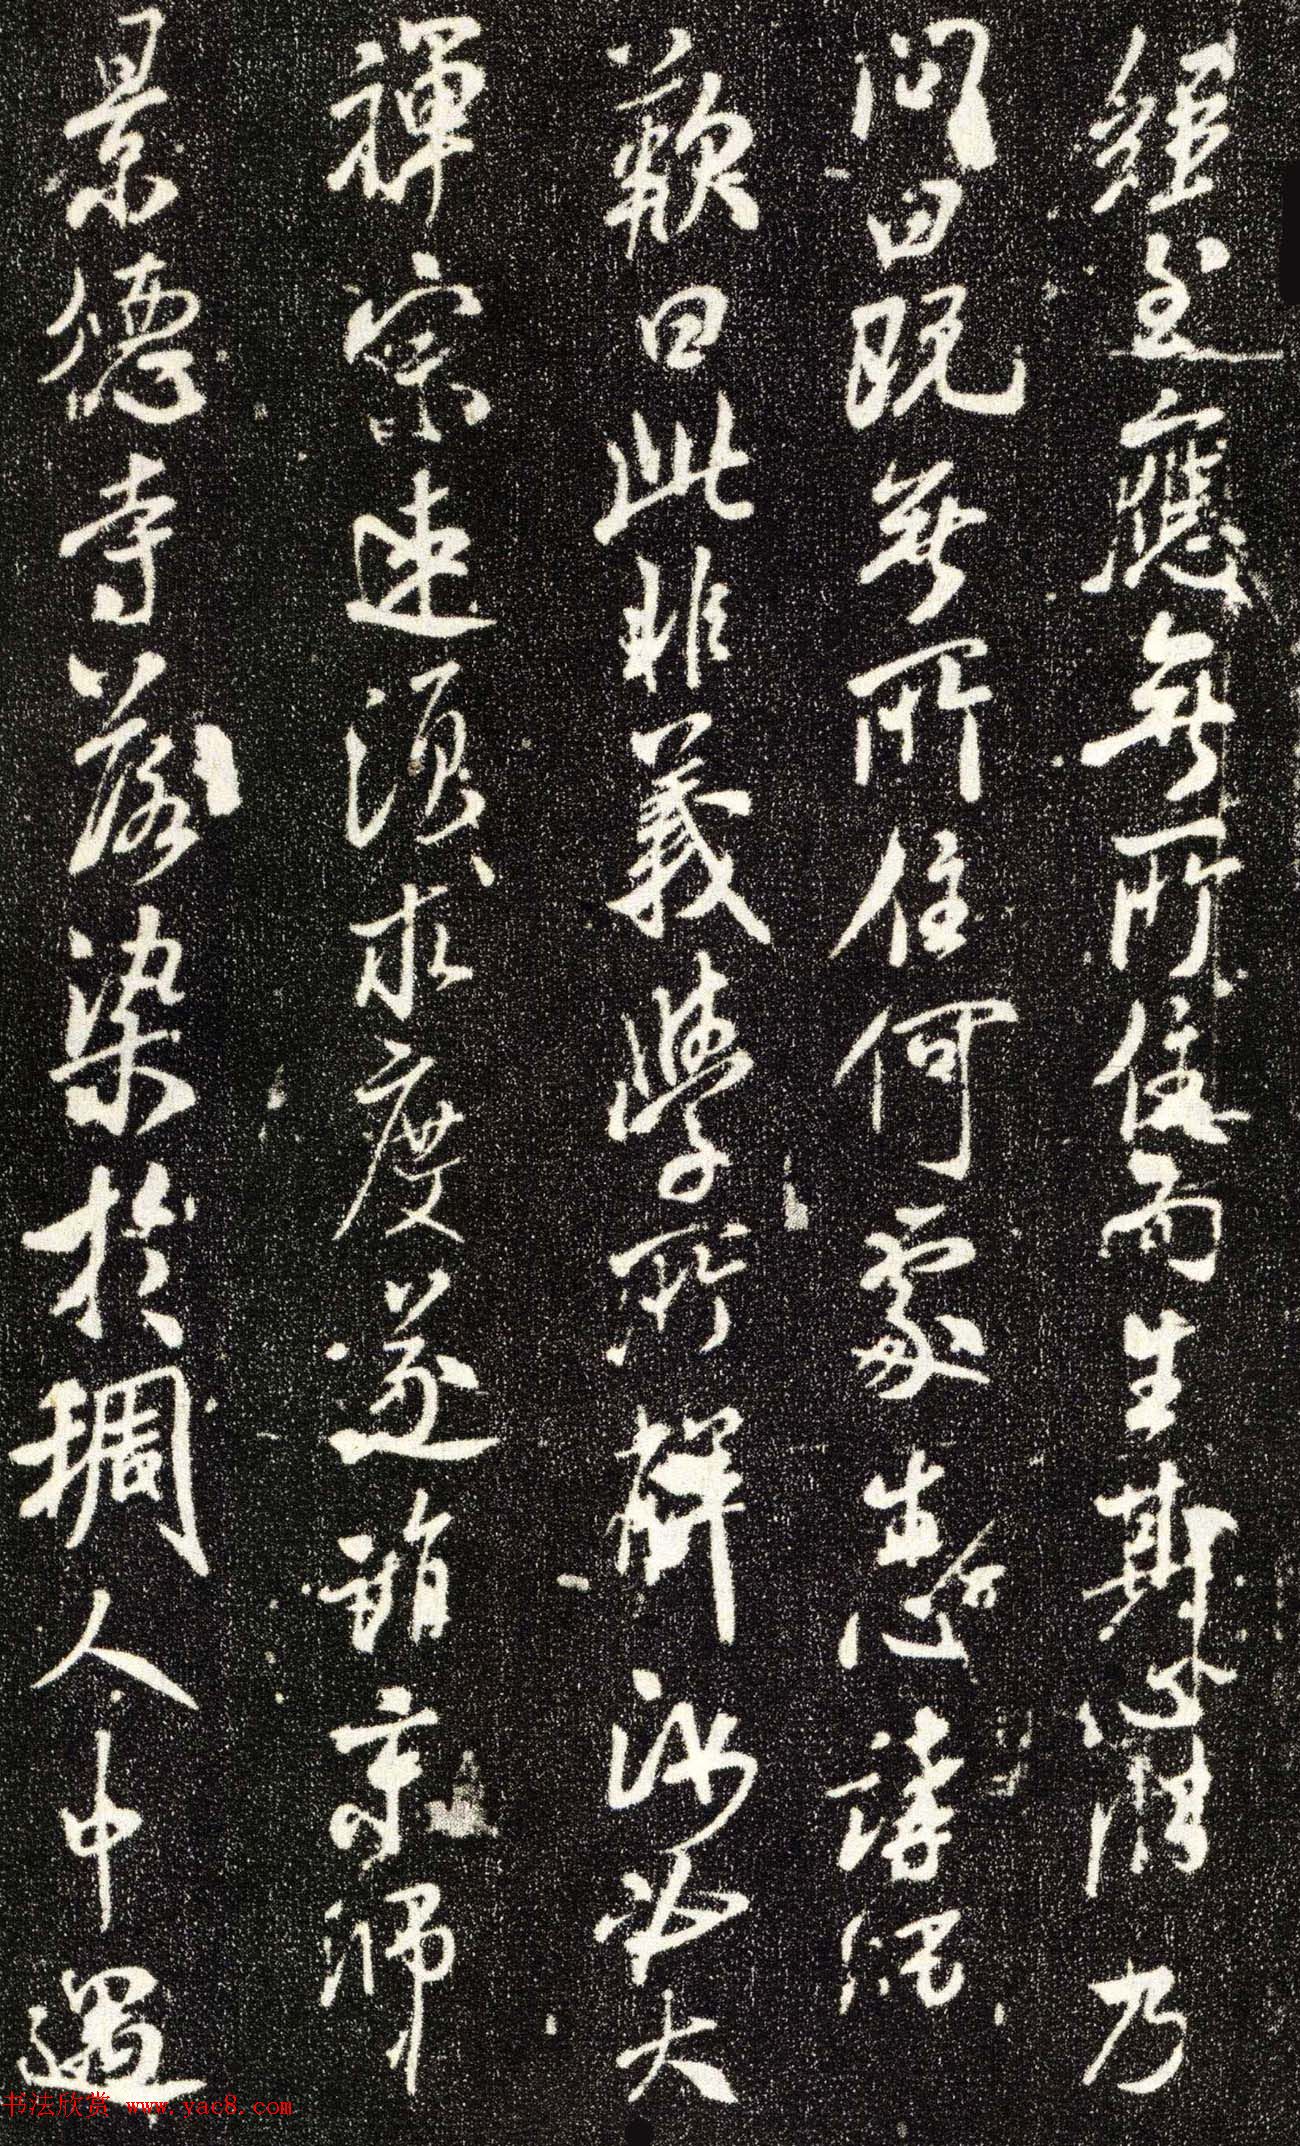 經至應無所住而生其心乃
問曰既無所住何處生心講經
歎曰此非義學所解汝當大
禪宗速須求度遂詣京師
景德寺落染於稠人中遇
书法欣赏 www.yac8.com